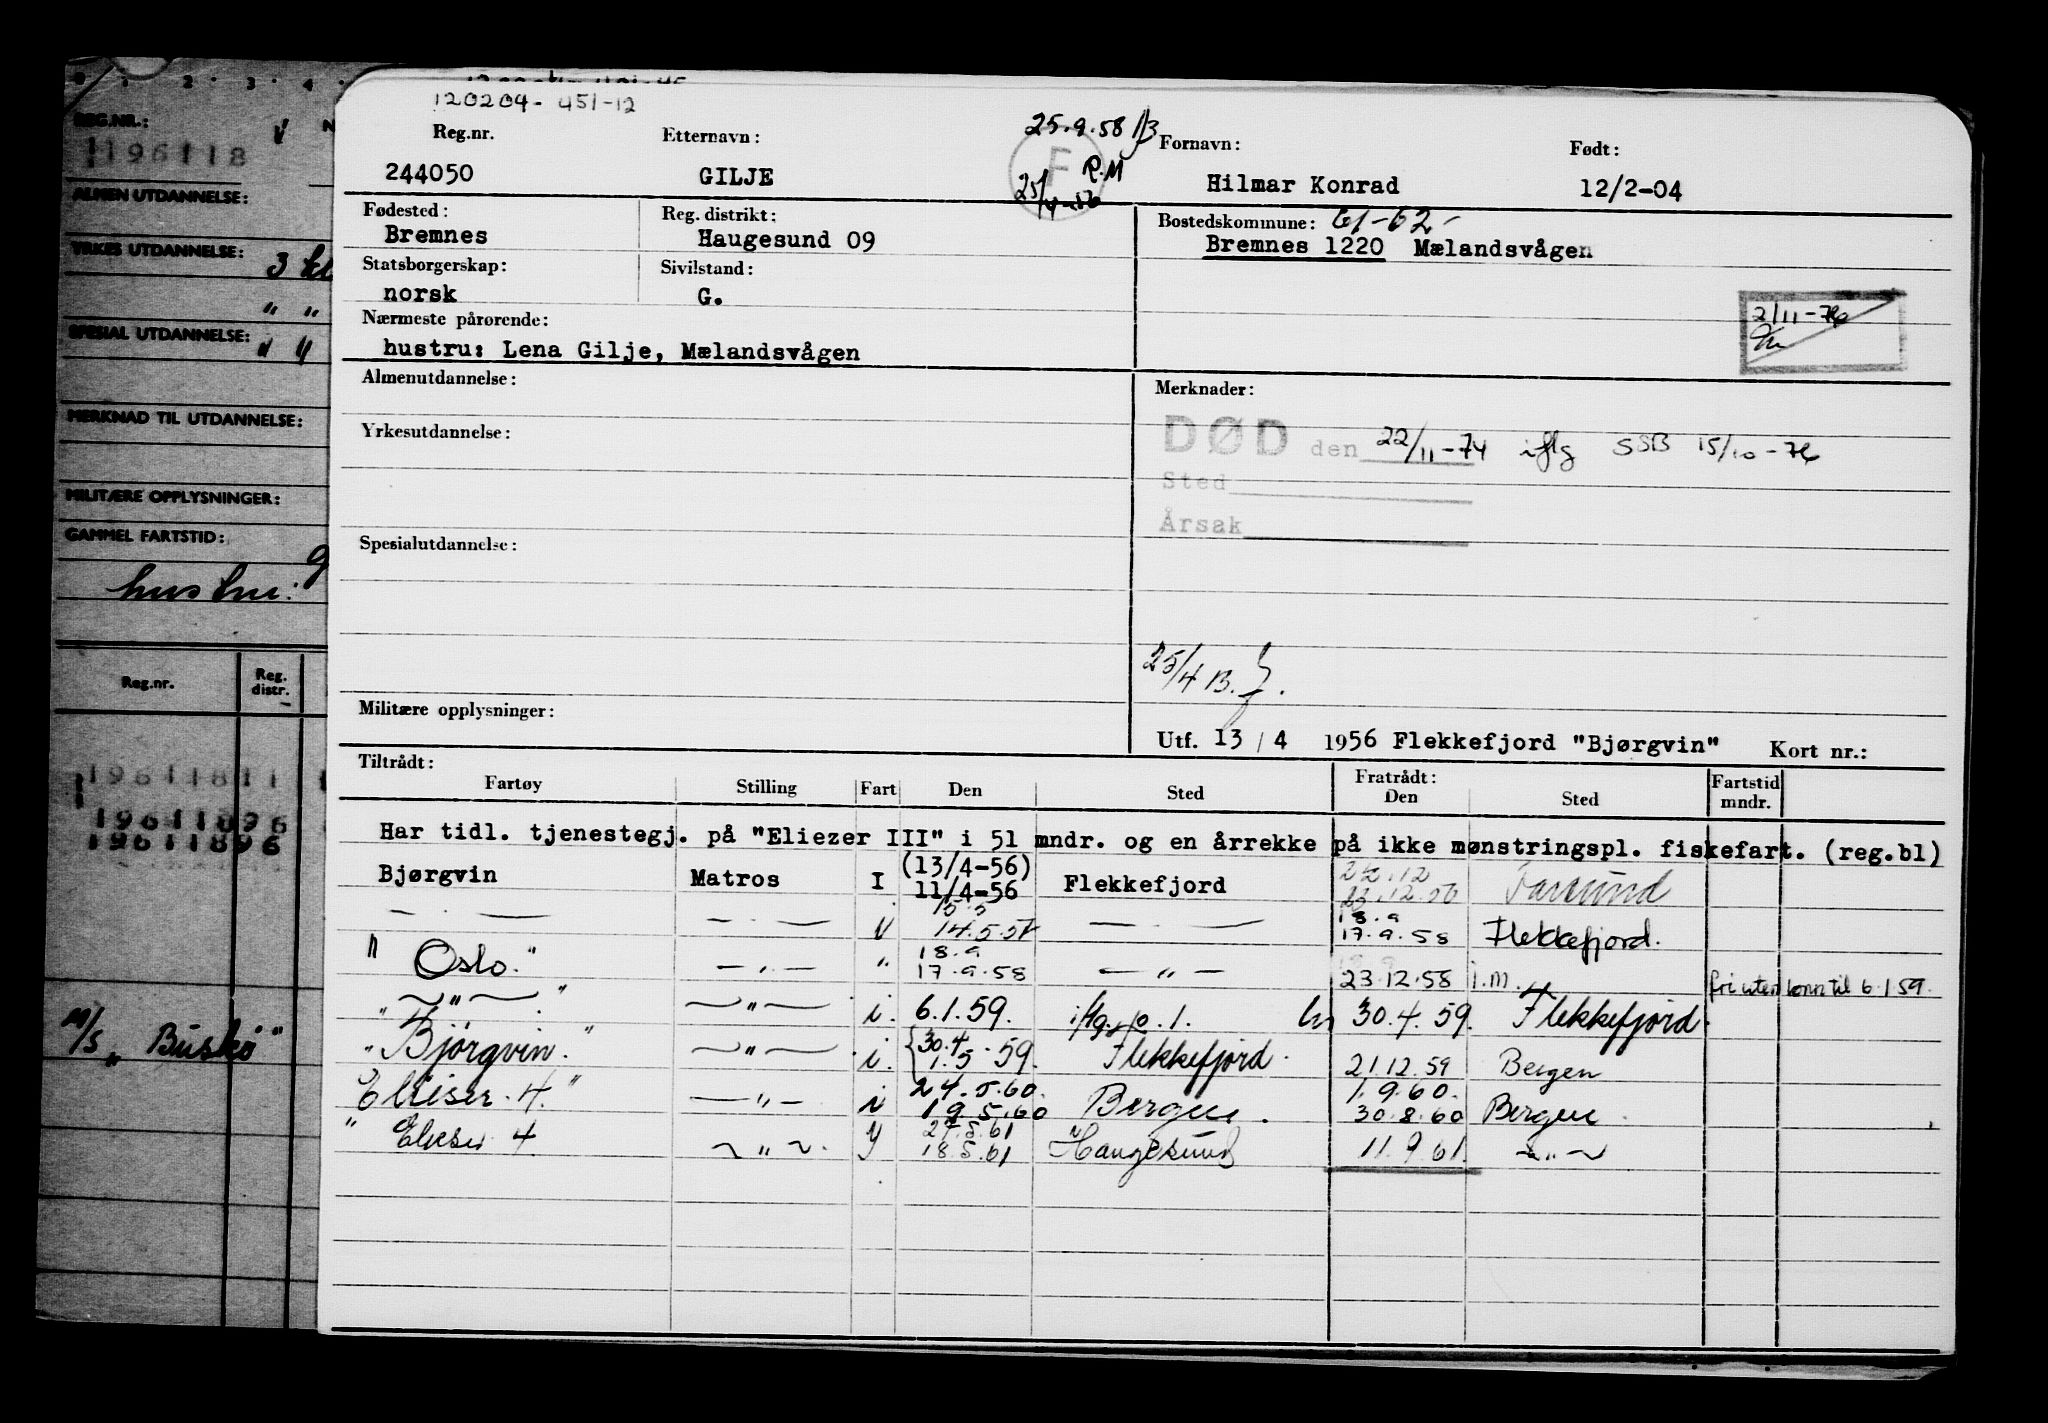 120204- 451-12
Reg.nr. Etternavn: 25.9.58 Fornavn: Født:
244050 GILJE F R.M Hilmar Konrad 12/2-04
25/4-56
Fødested: Reg. distrikt: Bostedskommune: 61-62-
Bremnes Haugesund 09 Bremnes 1220 Mælandsvågen
Statsborgerskap: Sivilstand:
norsk G.
Nærmeste pårørende: 2/11-76
hustru: Lena Gilje, Mælandsvågen
Almenutdannelse: Merknader:
DØD den 22/11-74 iflg SSB 15/10-76
Yrkesutdannelse:
Sted
Årsak
Spesialutdannelse:
25/4 B.J.
Militære opplysninger:
Utf. 13/4 1956 Flekkefjord "Bjørgvin" Kort nr.:
Tiltrådt: Fratrådt: Fartstid
Fartøy Stilling Fart Den Sted Den Sted mndr.
Har tidl. tjenestegj. på "Eliezer III" i 51 mndr. og en årrekke på ikke mønstringspl. fiskefart. (reg.bl)
(13/4-56) 22.12
Bjørgvin Matros I 11/4-56 Flekkefjord 23.12.56 Farsund
15.5 18.9
— " — — " — 14.5.57 — " — 17.9.58 Flekkefjord.
18.9
" Oslo. " — " — " 17.9.58 — " — 23.12.58 i.m. fri uten lønn til 6.1.59.
" — " — " — " — i. 6.1.59. iflg. p.1. 30.4.59. Flekkefjord.
30.4
" Bjørgvin. " — " — i. 1.5.59. Flekkefjord. 21.12.59 Bergen
24.5.60. 1.9.60.
Elieser. 4. " — " — i 19.5.60 Bergen. 30.8.60 Bergen
27.5.61
" Elieser 4 — " — 18.5.61 Haugesund 11.9.61. — " —
0 1 2 3 4
REG.NR.:
196118
ALMEN UTDANNELSE:
YRKES UTDANNELSE: 3 kl
" "
SPESIAL UTDANNELSE:
MERKNAD TIL UTDANNELSE:
MILITÆRE OPPLYSNINGER:
GAMMEL FARTSTID:
hustru:
Reg.nr. Reg. distr.
19611811
19611896
19611896
M/S "Buskø"